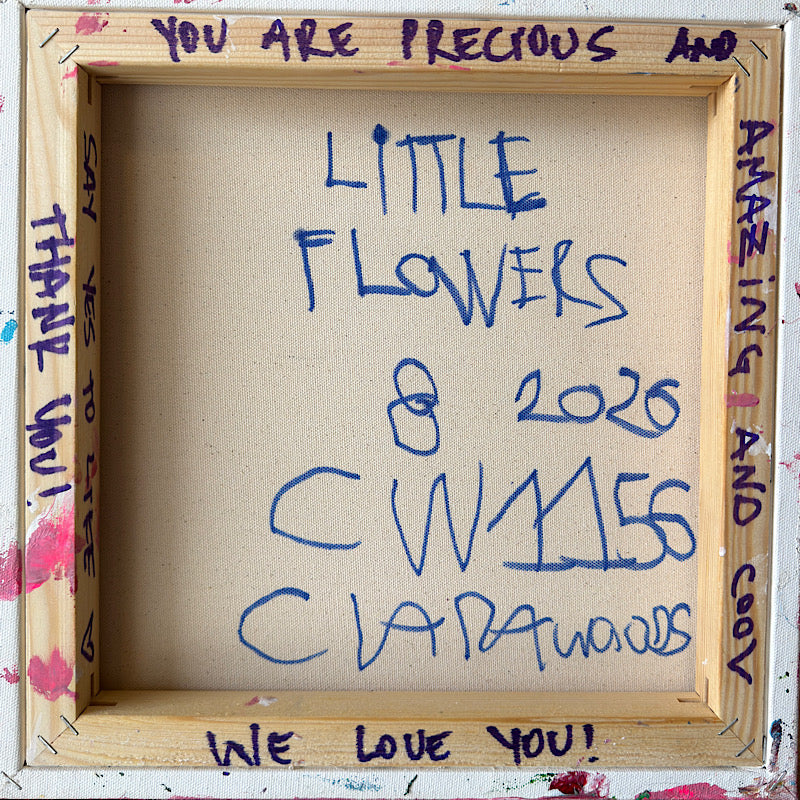 YOU ARE PRECIOUS AND
AMAZiNG AND COOL
WE LOVE YOU!
THANK YOU!
SAY YES TO LIFE
LiTTLE
FLOWERS
8 2026
CW1156
CLARAWOODS